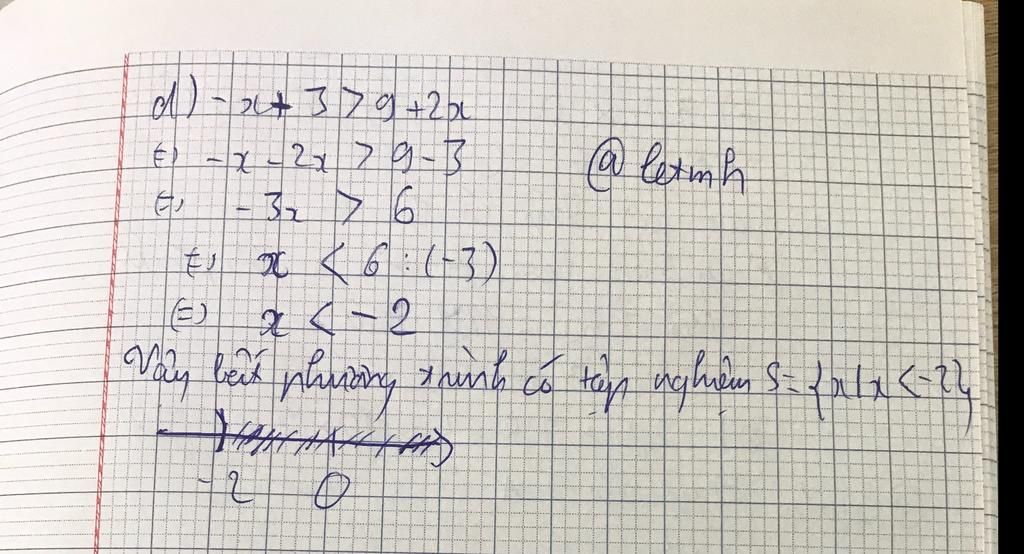 d) -x + 3 > 9 + 2x
⇔ -x - 2x > 9 - 3
@letmh
⇔ -3x > 6
⇔ x < 6 : (-3)
⇔ x < -2
Vậy bất phương trình có tập nghiệm S = {x/x < -2}
-2 0